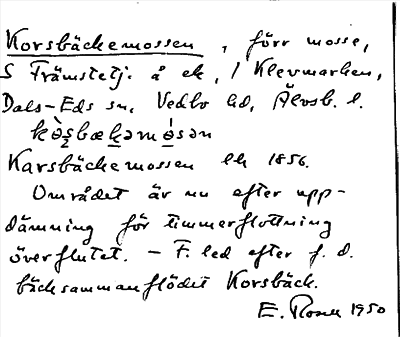 Korsbäckemossen, förr mosse,
S Främstetj. å ek, i Klevmarken,
Dals-Eds sn, Vedbo hd, Älvsb. l.
Karsbäckemossen lk 1856.
Området är nu efter upp-
dämning för timmerflottning
överflutet. – F. led efter f. d.
bäcksammanflödet Korsbäck.
E. Rosen 1950